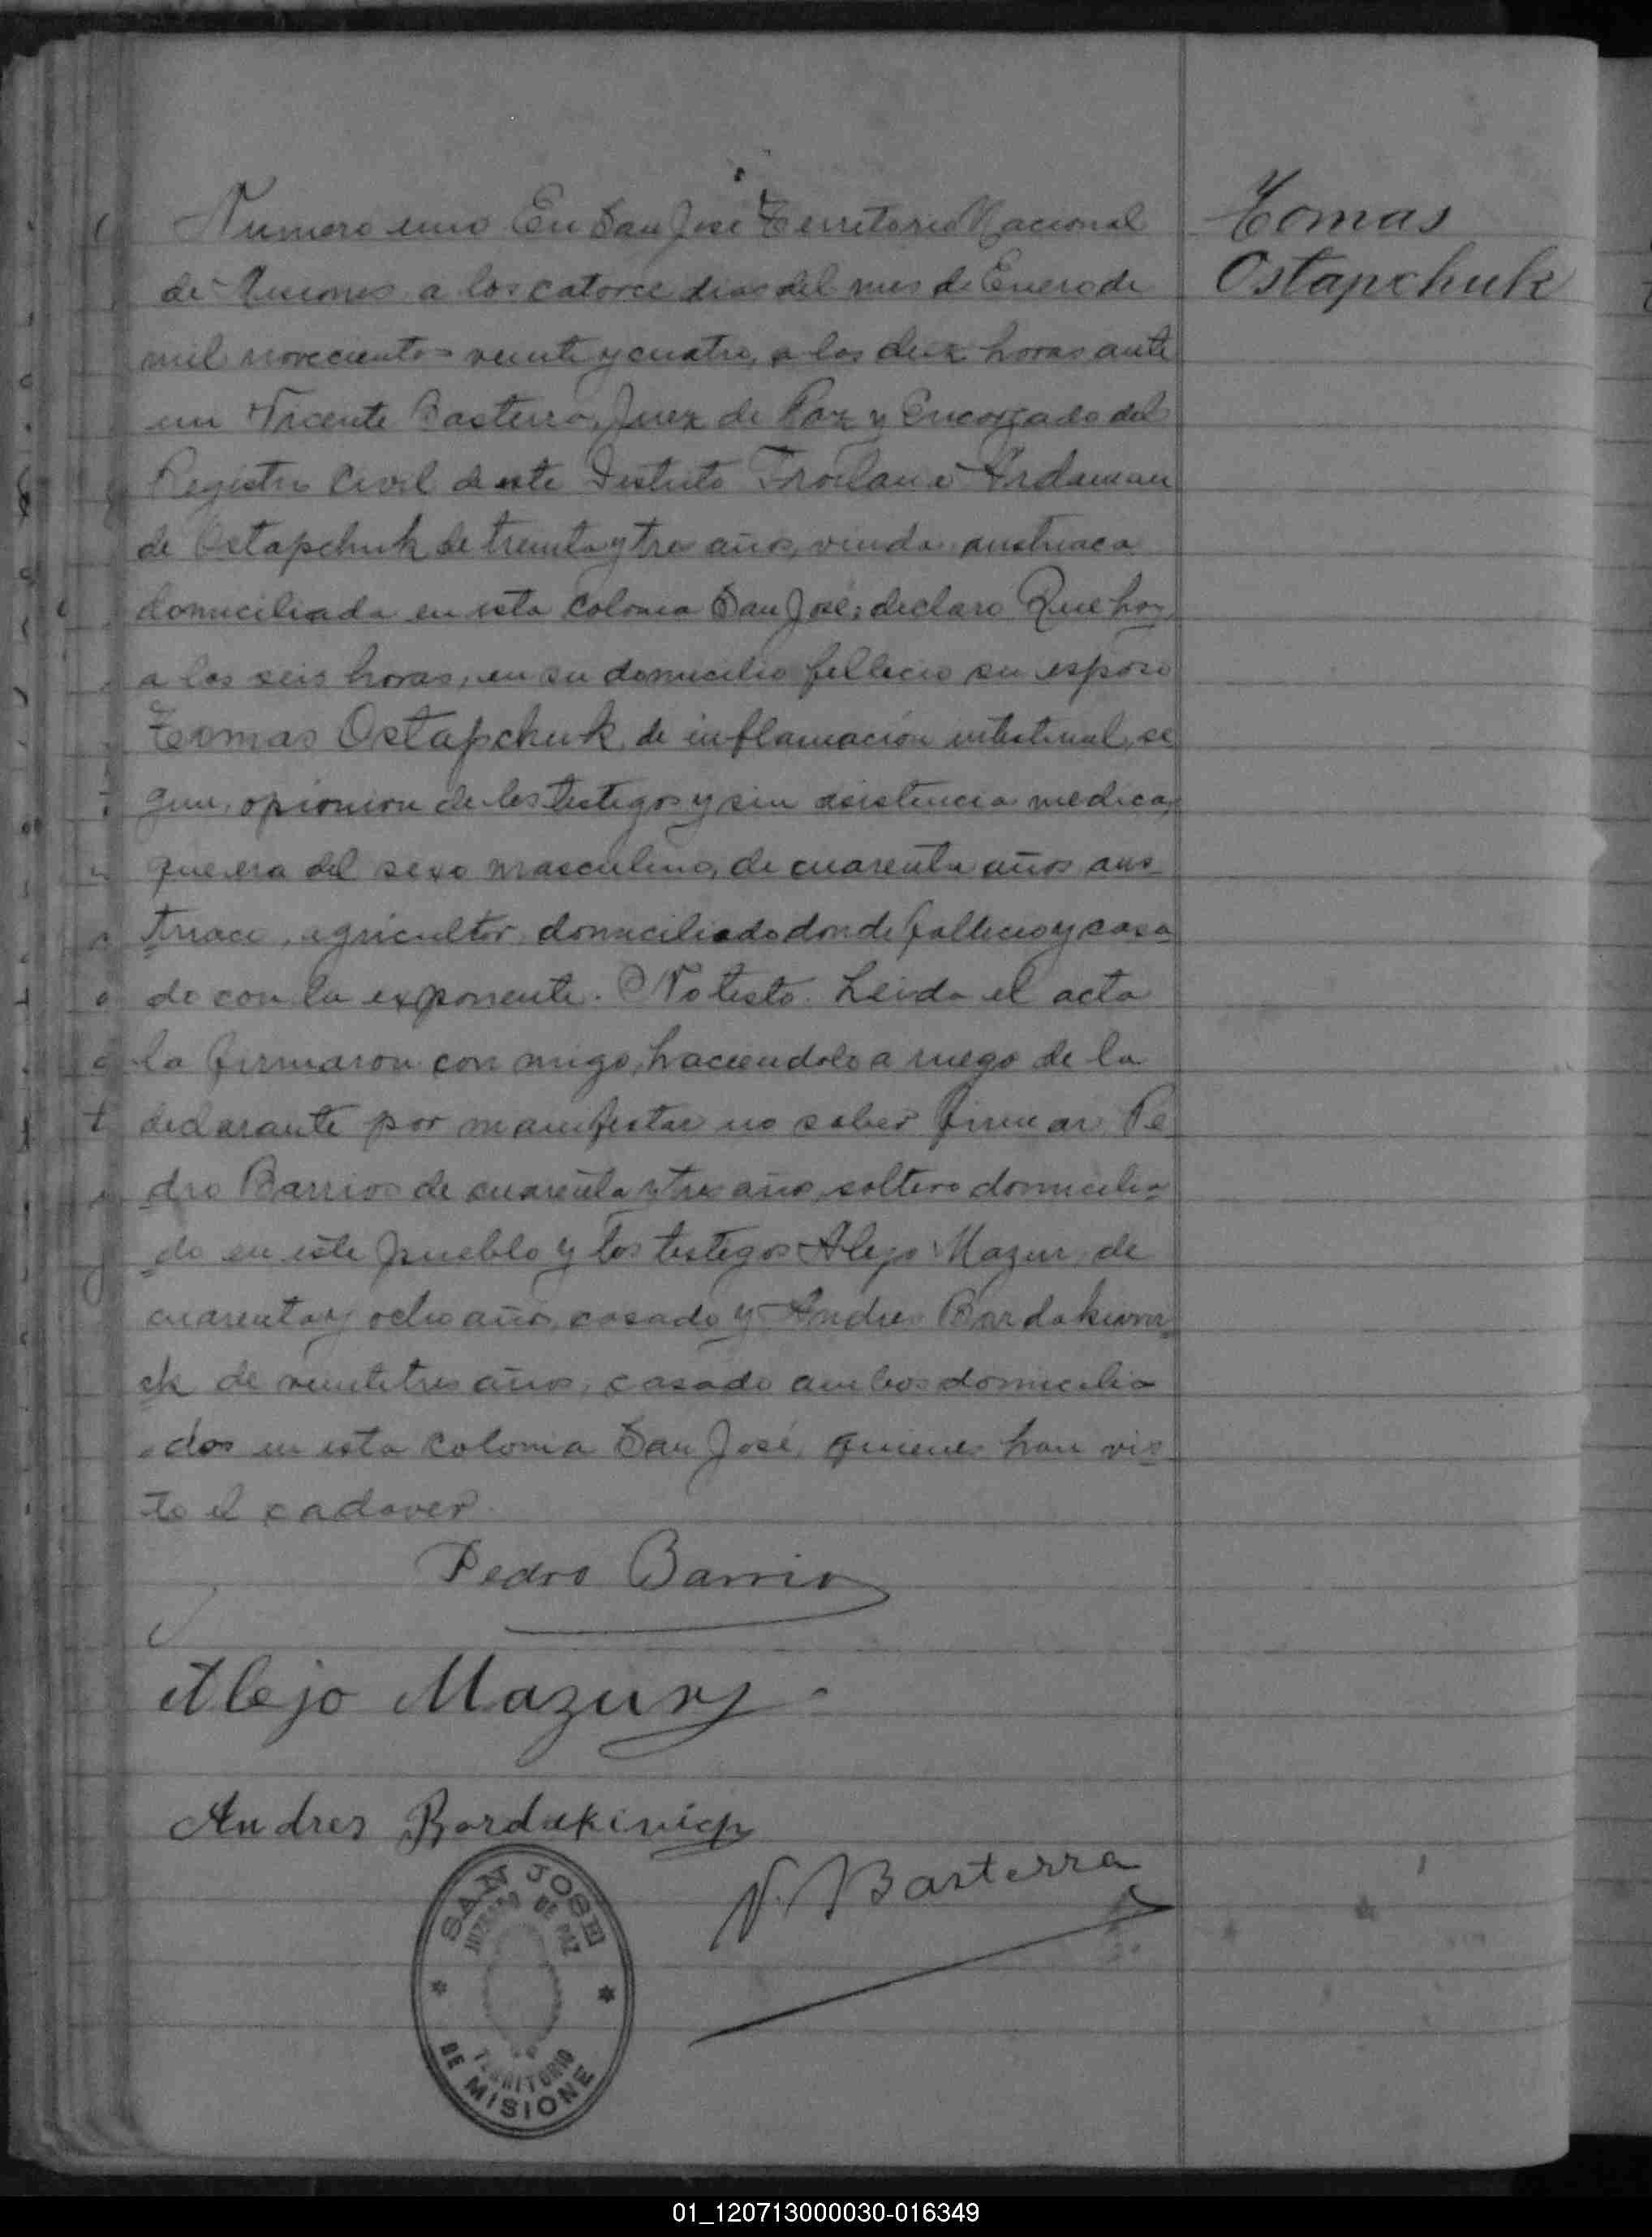 Tomas
Ostapchuk
Numero uno En San José Territorio Nacional
de Misiones a los catorce dias del mes de Enero de
mil novecientos veinte y cuatro, a las diez horas ante
mi Vicente Basterra, Juez de Paz y Encargado del
Registro Civil de este Distrito
de Ostapchuk de treinta y tres años, viuda, austriaca
domiciliada en esta colonia San José; declaro Que hoy,
a las seis horas, en su domicilio fellecio su esposo
Tomas Ostapchuk de inflamación intestinal, se
gun, opinion de los testigos y sin asistencia medica,
que era del sexo masculino, de cuarenta años, aus
triaco, agricultor, domiciliado donde fallecio y casa
do con la exponente. No testo. Leida el acta
la firmaron con migo, haciendolo a ruego de la
declarante por manifestar no saber firmar Pe
dro Barrios de cuarenta y tres años, soltero domicilia
do en este pueblo y los testigos Alejo Mazur, de
cuarenta y ocho años, casado y Andres
de veintitres años, casado ambos domicilia
dos en esta colonia San José, quienes han vis
to el cadaver.
Pedro Barrios
Alejo Mazur
Andres Bordakivich
V. Basterra
SAN JOSE
JUZGADO DE PAZ
TERRITORIO
DE MISIONE
01_120713000030-016349